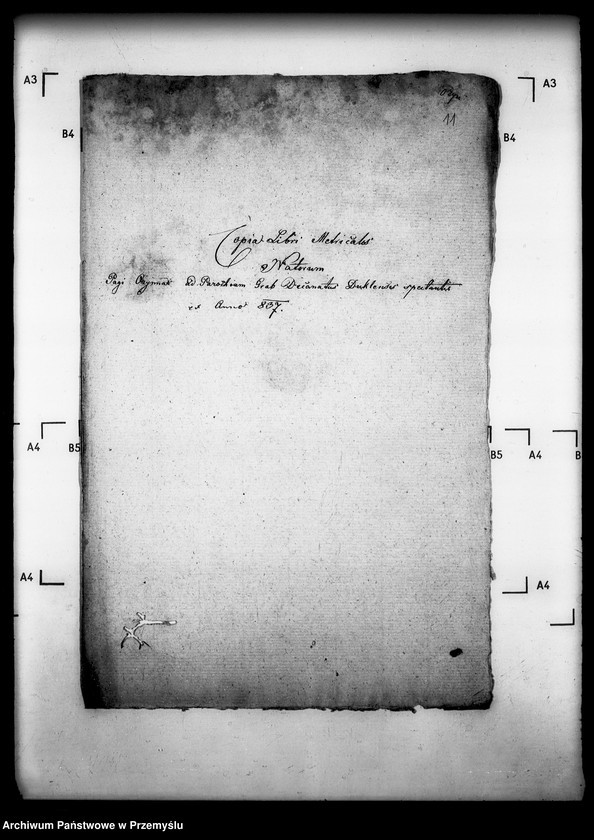 A3
A3
B4
B4
11
Copia Libri Metricales
Natorum
Pagi Ożynna ad Parochiam Grab Decanatus Duklensis spectantis
ex Anno 837.
A4
B5
B5
A4
B
A4
A4
Archiwum Państwowe w Przemyślu